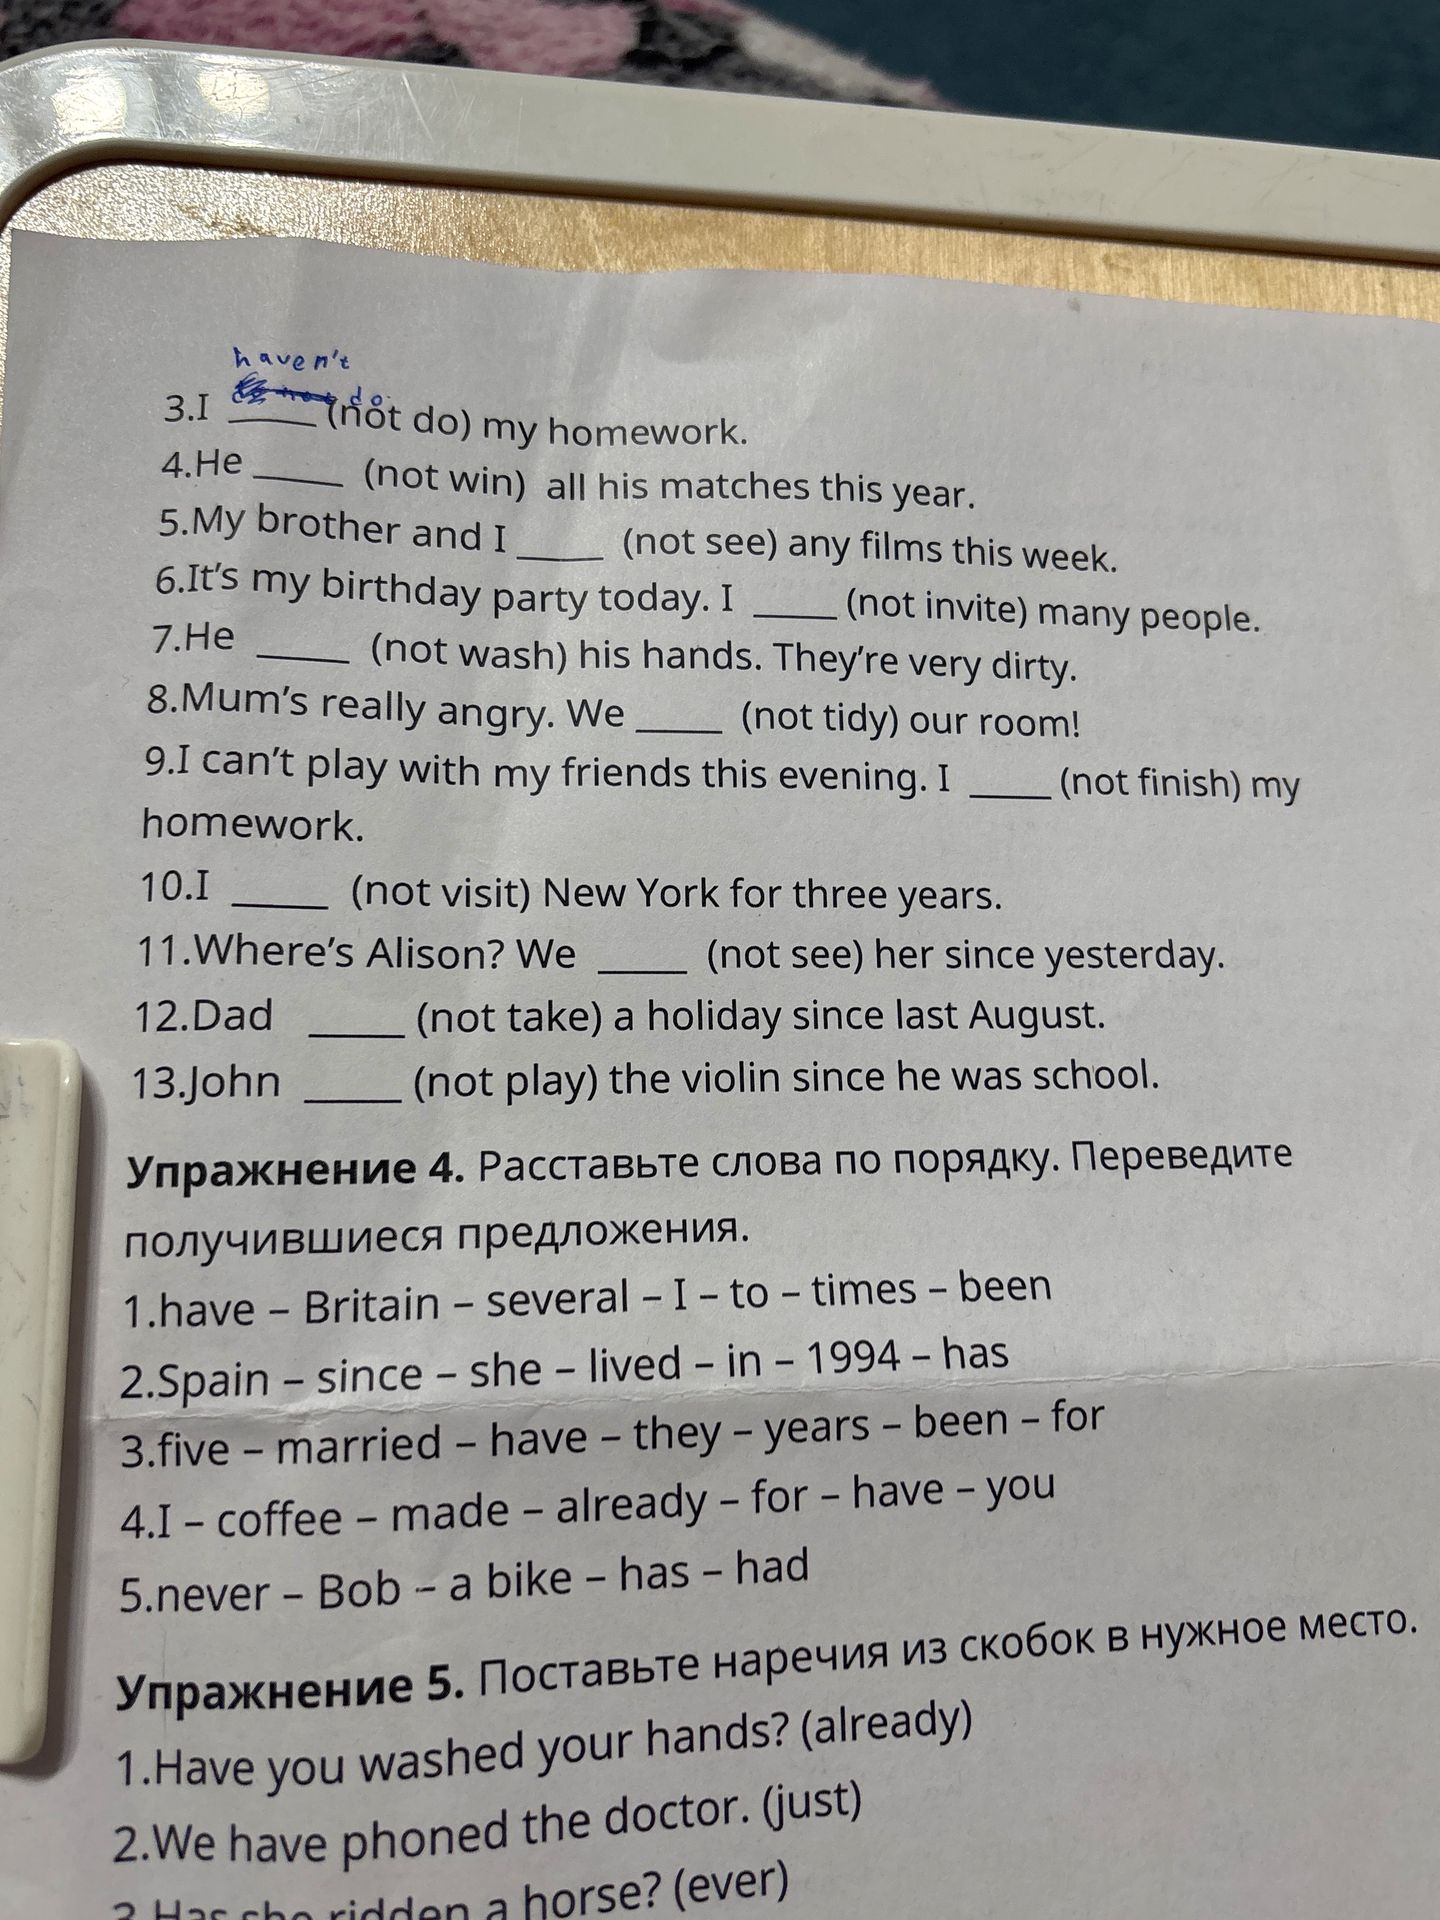 haven't
do
3.I _____ (not do) my homework.
4.He _____ (not win) all his matches this year.
5.My brother and I _____ (not see) any films this week.
6.It's my birthday party today. I _____ (not invite) many people.
7.He _____ (not wash) his hands. They're very dirty.
8.Mum's really angry. We _____ (not tidy) our room!
9.I can't play with my friends this evening. I _____ (not finish) my
homework.
10.I _____ (not visit) New York for three years.
11.Where's Alison? We _____ (not see) her since yesterday.
12.Dad _____ (not take) a holiday since last August.
13.John _____ (not play) the violin since he was school.
Упражнение 4. Расставьте слова по порядку. Переведите
получившиеся предложения.
1.have – Britain – several – I – to – times – been
2.Spain – since – she – lived – in – 1994 – has
3.five – married – have – they – years – been – for
4.I – coffee – made – already – for – have – you
5.never – Bob – a bike – has – had
Упражнение 5. Поставьте наречия из скобок в нужное место.
1.Have you washed your hands? (already)
2.We have phoned the doctor. (just)
3.Has she ridden a horse? (ever)